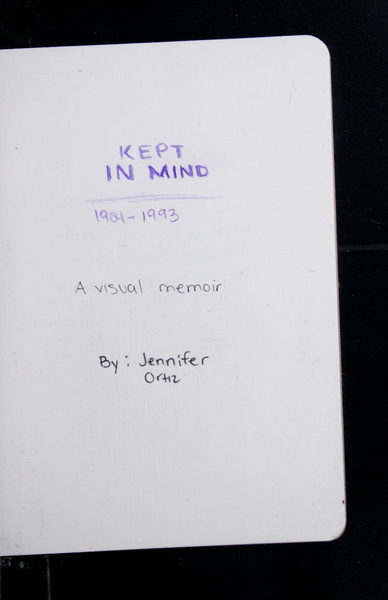 KEPT
IN MIND
1984-1993
A visual memoir
By: Jennifer
Ortiz